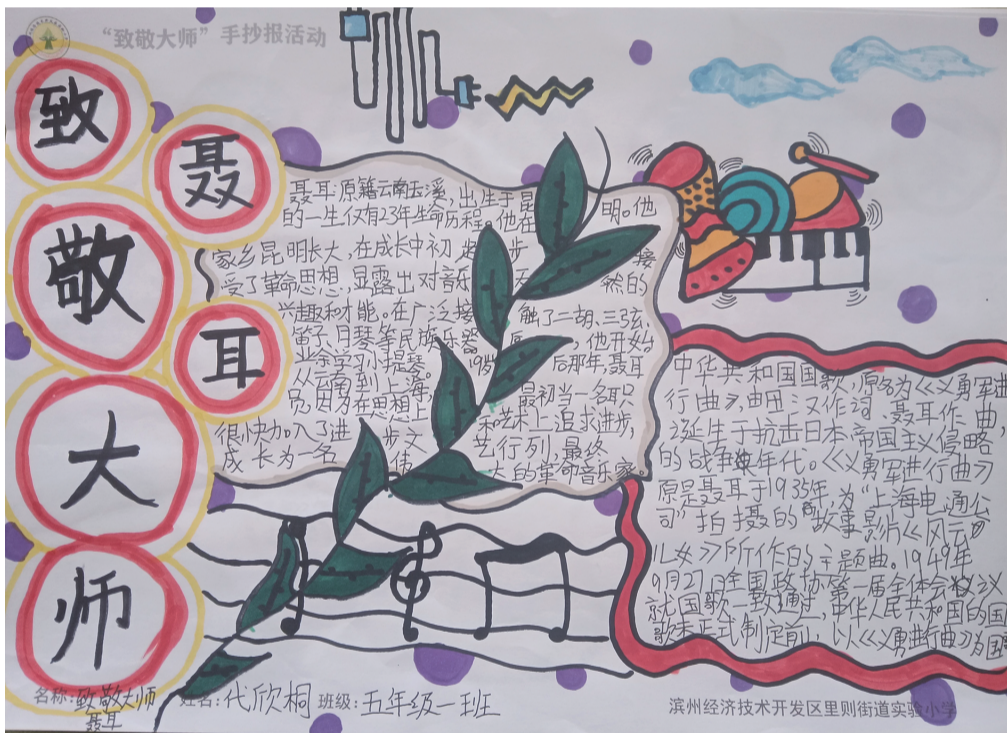 “致敬大师”手抄报活动
致敬大师
聂耳
聂耳:原籍云南玉溪,出生于昆明。他
的一生仅有23年生命历程。他在
家乡昆明长大,在成长中初步接
受了革命思想,显露出对音乐天然的
兴趣和才能。在广泛接触了二胡、三弦、
笛子、月琴等民族乐器后,他开始
业余学习小提琴。19岁后那年,聂耳
从云南到上海,最初当一名职
员,因为在思想上和艺术上追求进步,
很快加入了进步文艺行列,最终
成长为一名伟大的革命音乐家。
中华共和国国歌,原名为《义勇军进
行曲》,由田汉作词,聂耳作曲,
诞生于抗击日本帝国主义侵略
的战争年代。《义勇军进行曲》
原是聂耳于1935年为“上海电通公
司”拍摄的故事影片《风云
儿女》所作的主题曲。1949年
9月27日全国政协第一届全体会议
就国歌一致通过,中华人民共和国的国
歌未正式制定前,以《义勇进行曲》为国
名称:致敬大师
聂耳
姓名:代欣桐 班级:五年级一班
滨州经济技术开发区里则街道实验小学